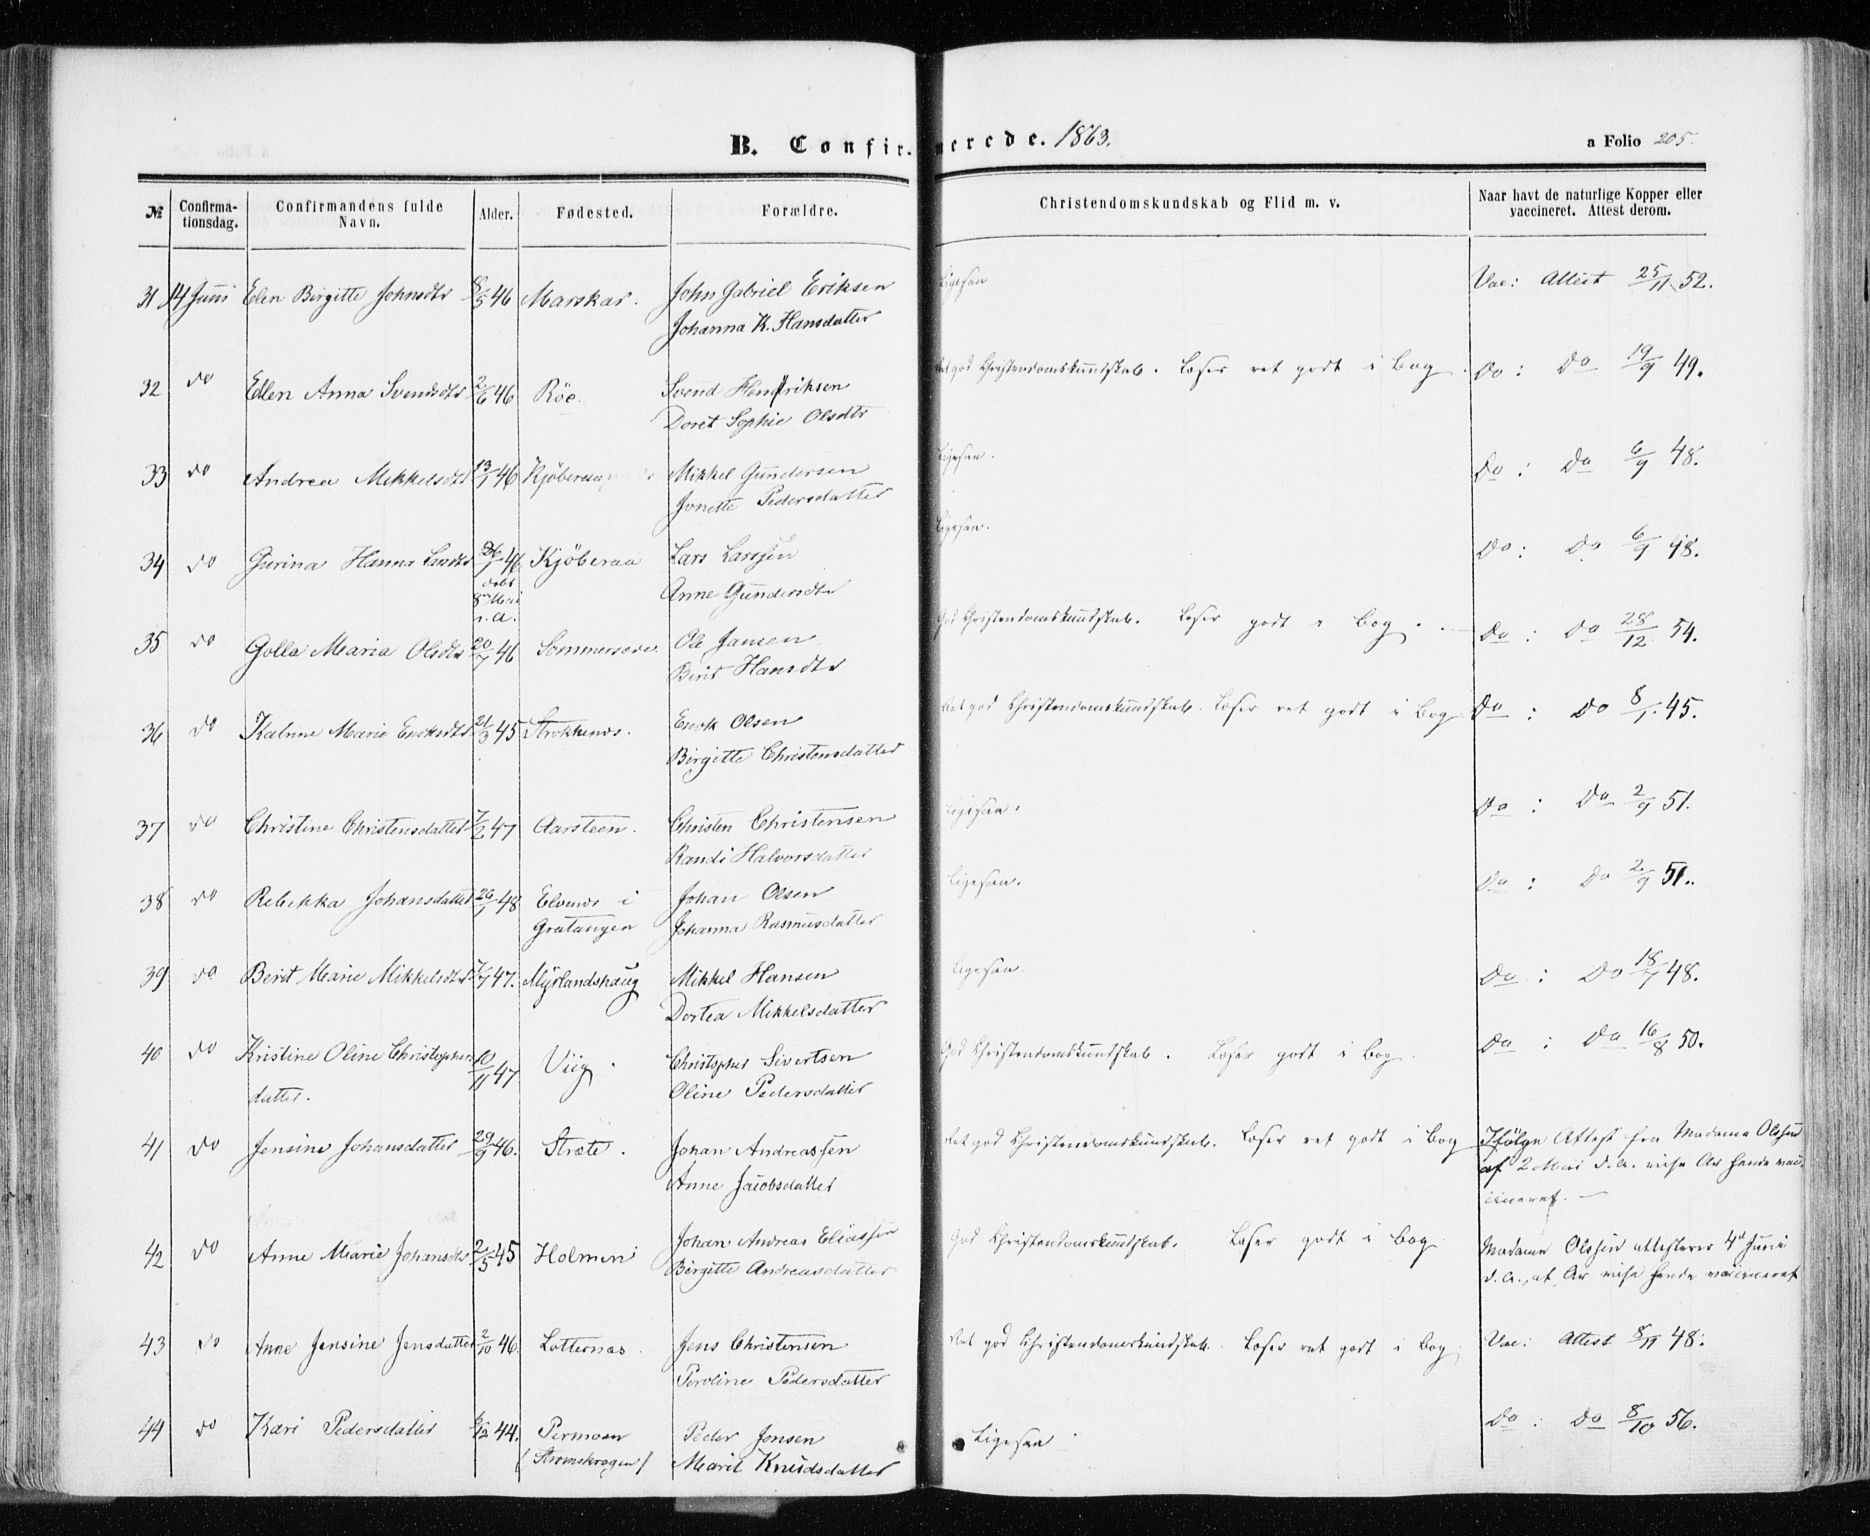 B. Confirmerede. 1863.
a Folio 205
№ Confirmationsdag. Confirmandens fulde Navn. Alder. Fødested. Forældre. Christendomskundskab og Flid m. v. Naar havt de naturlige Kopper eller vaccineret. Attest derom.
31 14 Juni Elen Birgitte Johnsdtr 8/5 46 Marskar. John Gabriel Eriksen Ligesaa Vac: Attest 25/11 52.
Johanna K. Hansdatter
32 do Ellen Anna Svendsdtr 2/6 46 Röe. Svend Hendriksen Ret god Christendomskundskab. Læser ret godt i Bog. Do: Do 19/9 49.
Doret Sophie Olsdtr
33 do Andrea Mikkelsdtr 13/1 46 Kjöberaa Mikkel Gundersen Ligesaa. Do: Do 6/9 48.
Jonette Pedersdatter
34 do Gurina Hanna Larsdtr 26/1 46 Kjöberaa Lars Larssen Ligesaa. Do: Do 6/9 48.
døbt 8 Mai s. A. Anne Gundersdtr
35 do Golla Maria Olsdtr 20/7 46 Ole Jansen God Christendomskundskab. Læser godt i Bog. Do: Do 28/12 54.
Berit Hansdtr
36 do Katrine Marie Ericksdtr 21/3 45 Strokkenæs. Erick Olsen Ret god Christendomskundskab. Læser ret godt i Bog Do: Do 8/1 45.
Birgitte Christensdatter
37 do Christine Christensdatter 7/2 47 Aarsteen. Christen Christensen Ligesaa. Do: Do 2/9 51.
Randi Halvorsdatter
38 do Rebekka Johansdatter 26/1 48 Elvenæs i Johan Olsen Ligesaa. Do: Do 2/9 51.
Gratangen Johanna Rasmusdatter
39 do Berit Marie Mikkelsdtr 7/7 47. Myrlandshaug Mikkel Hansen Ligesaa. Do: Do 18/7 48.
Dortea Mikkelsdatter
40 do Kristine Oline Christopher 10/11 47 Viig. Christopher Sivertsen God Christendomskundskab. Læser godt i Bog. Do: Do 16/8 50.
datter. Oline Pedersdatter
41 do Jensine Johansdatter 29/9 46. Stræte. Johan Andreassen Ret god Christendomskundskab. Læser ret godt i Bog Ifølge Attest fra Madame Olssen
Anne Jacobsdatter af 2 Mai d. A. vise Ar hende vac
cineret.
42 do Anne Marie Johansdtr 2/5 45 Holmen Johan Andreas Eliassen God Christendomskundskab. Læser godt i Bog Madame Olssen attesterer 4de Juni
Birgitte Andreasdatter d. A., at Ar vise hende vaccineret
43 do Anne Jensine Jensdatter 2/10 46. Lotternæs. Jens Christensen Ret god Christendomskundskab. Læser ret godt i Bog. Vac: Attest 8/11 48:
Peroline Pedersdatter
44 do Kari Pedersdatter 6/12 44. Permoen Peder Jensen Ligesaa Do: Do 8/10 56.
(Strømskrogen) Marit Knudsdatter